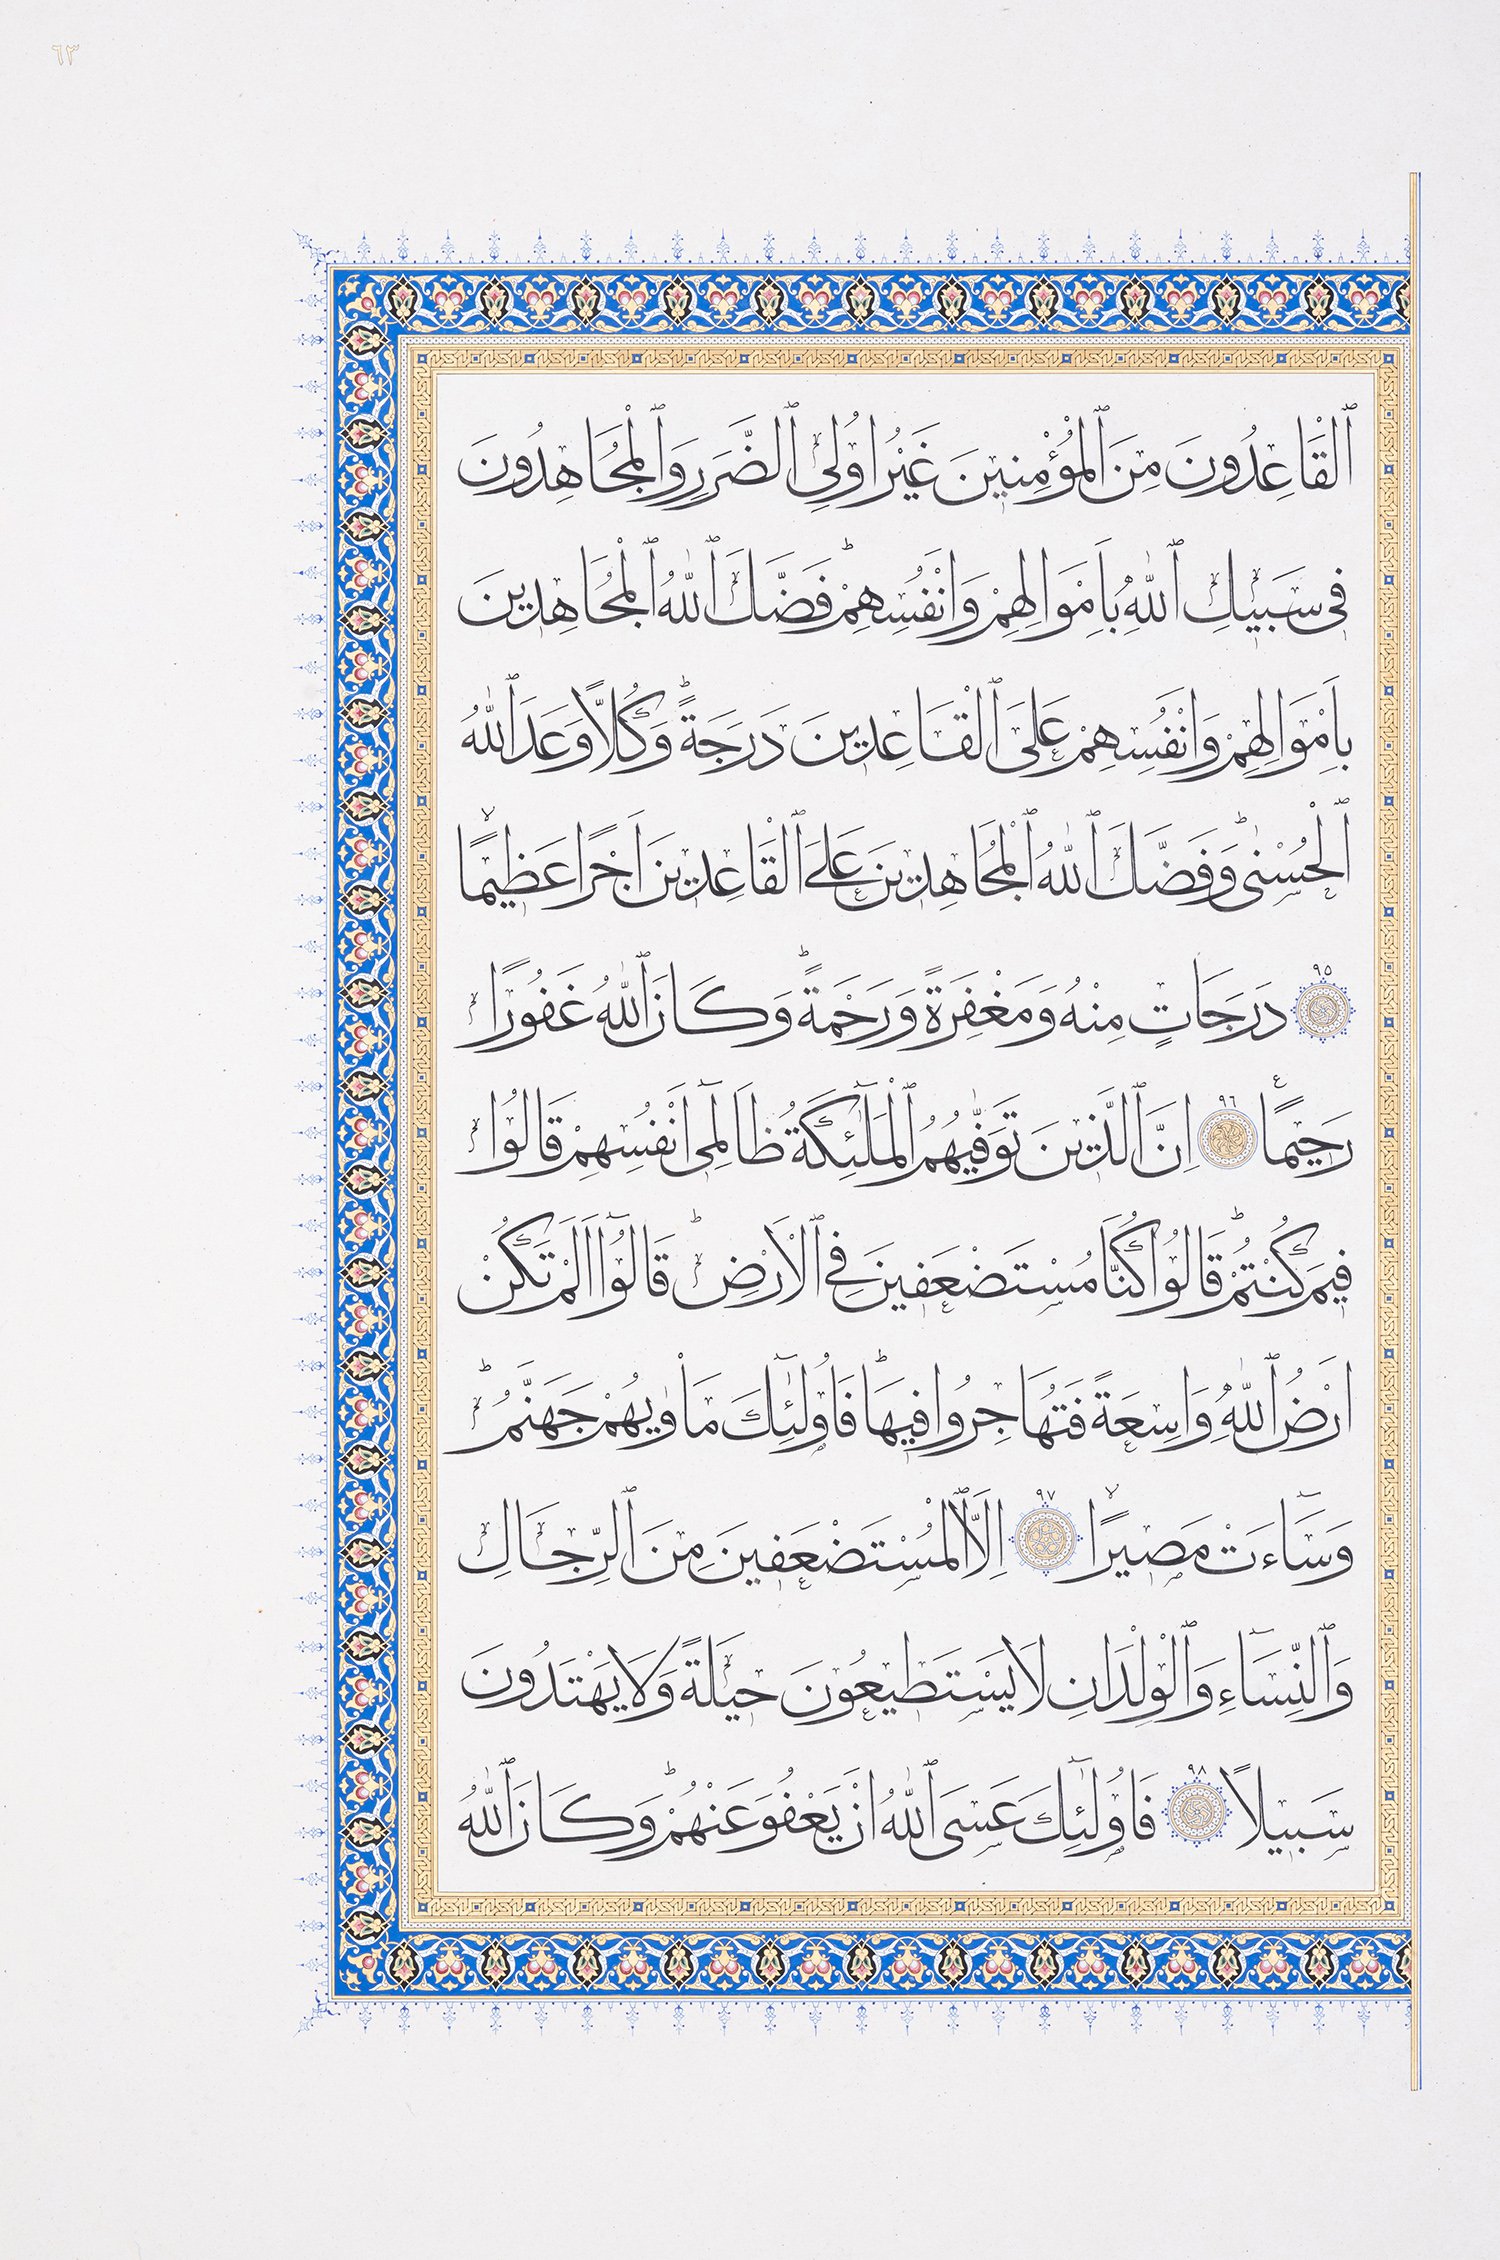 ٦٣
ٱلْقَاعِدُونَ مِنَ ٱلْمُؤْمِنِينَ غَيْرُ اُولِى ٱلضَّرَرِ وَٱلْمُجَاهِدُونَ
فِى سَبِيلِ ٱللّٰهِ بِاَمْوَالِهِمْ وَاَنْفُسِهِمْؕ فَضَّلَ ٱللّٰهُ ٱلْمُجَاهِدِينَ
بِاَمْوَالِهِمْ وَاَنْفُسِهِمْ عَلَى ٱلْقَاعِدِينَ دَرَجَةًؕ وَكُلًّا وَعَدَ ٱللّٰهُ
ٱلْحُسْنٰىؕ وَفَضَّلَ ٱللّٰهُ ٱلْمُجَاهِدِينَ عَلَى ٱلْقَاعِدِينَ اَجْرًا عَظِيمًاۙ
٩٥ دَرَجَاتٍ مِنْهُ وَمَغْفِرَةً وَرَحْمَةًؕ وَكَانَ ٱللّٰهُ غَفُورًا
رَحِيمًا ع ٩٦ اِنَّ ٱلَّذِينَ تَوَفّٰيهُمُ ٱلْمَلٰٓئِكَةُ ظَالِمِٓى اَنْفُسِهِمْ قَالُوا
فِيمَ كُنْتُمْؕ قَالُوا كُنَّا مُسْتَضْعَفِينَ فِى ٱلْاَرْضِؕ قَالُوٓا اَلَمْ تَكُنْ
اَرْضُ ٱللّٰهِ وَاسِعَةً فَتُهَاجِرُوا فِيهَاؕ فَاُولٰٓئِكَ مَأْوٰيهُمْ جَهَنَّمُؕ
وَسَٓاءَتْ مَصِيرًاۙ ٩٧ اِلَّا ٱلْمُسْتَضْعَفِينَ مِنَ ٱلرِّجَالِ
وَٱلنِّسَٓاءِ وَٱلْوِلْدَانِ لَا يَسْتَطِيعُونَ حِيلَةً وَلَا يَهْتَدُونَ
سَبِيلًا ٩٨ فَاُولٰٓئِكَ عَسَى ٱللّٰهُ اَنْ يَعْفُوَ عَنْهُمْؕ وَكَانَ ٱللّٰهُ